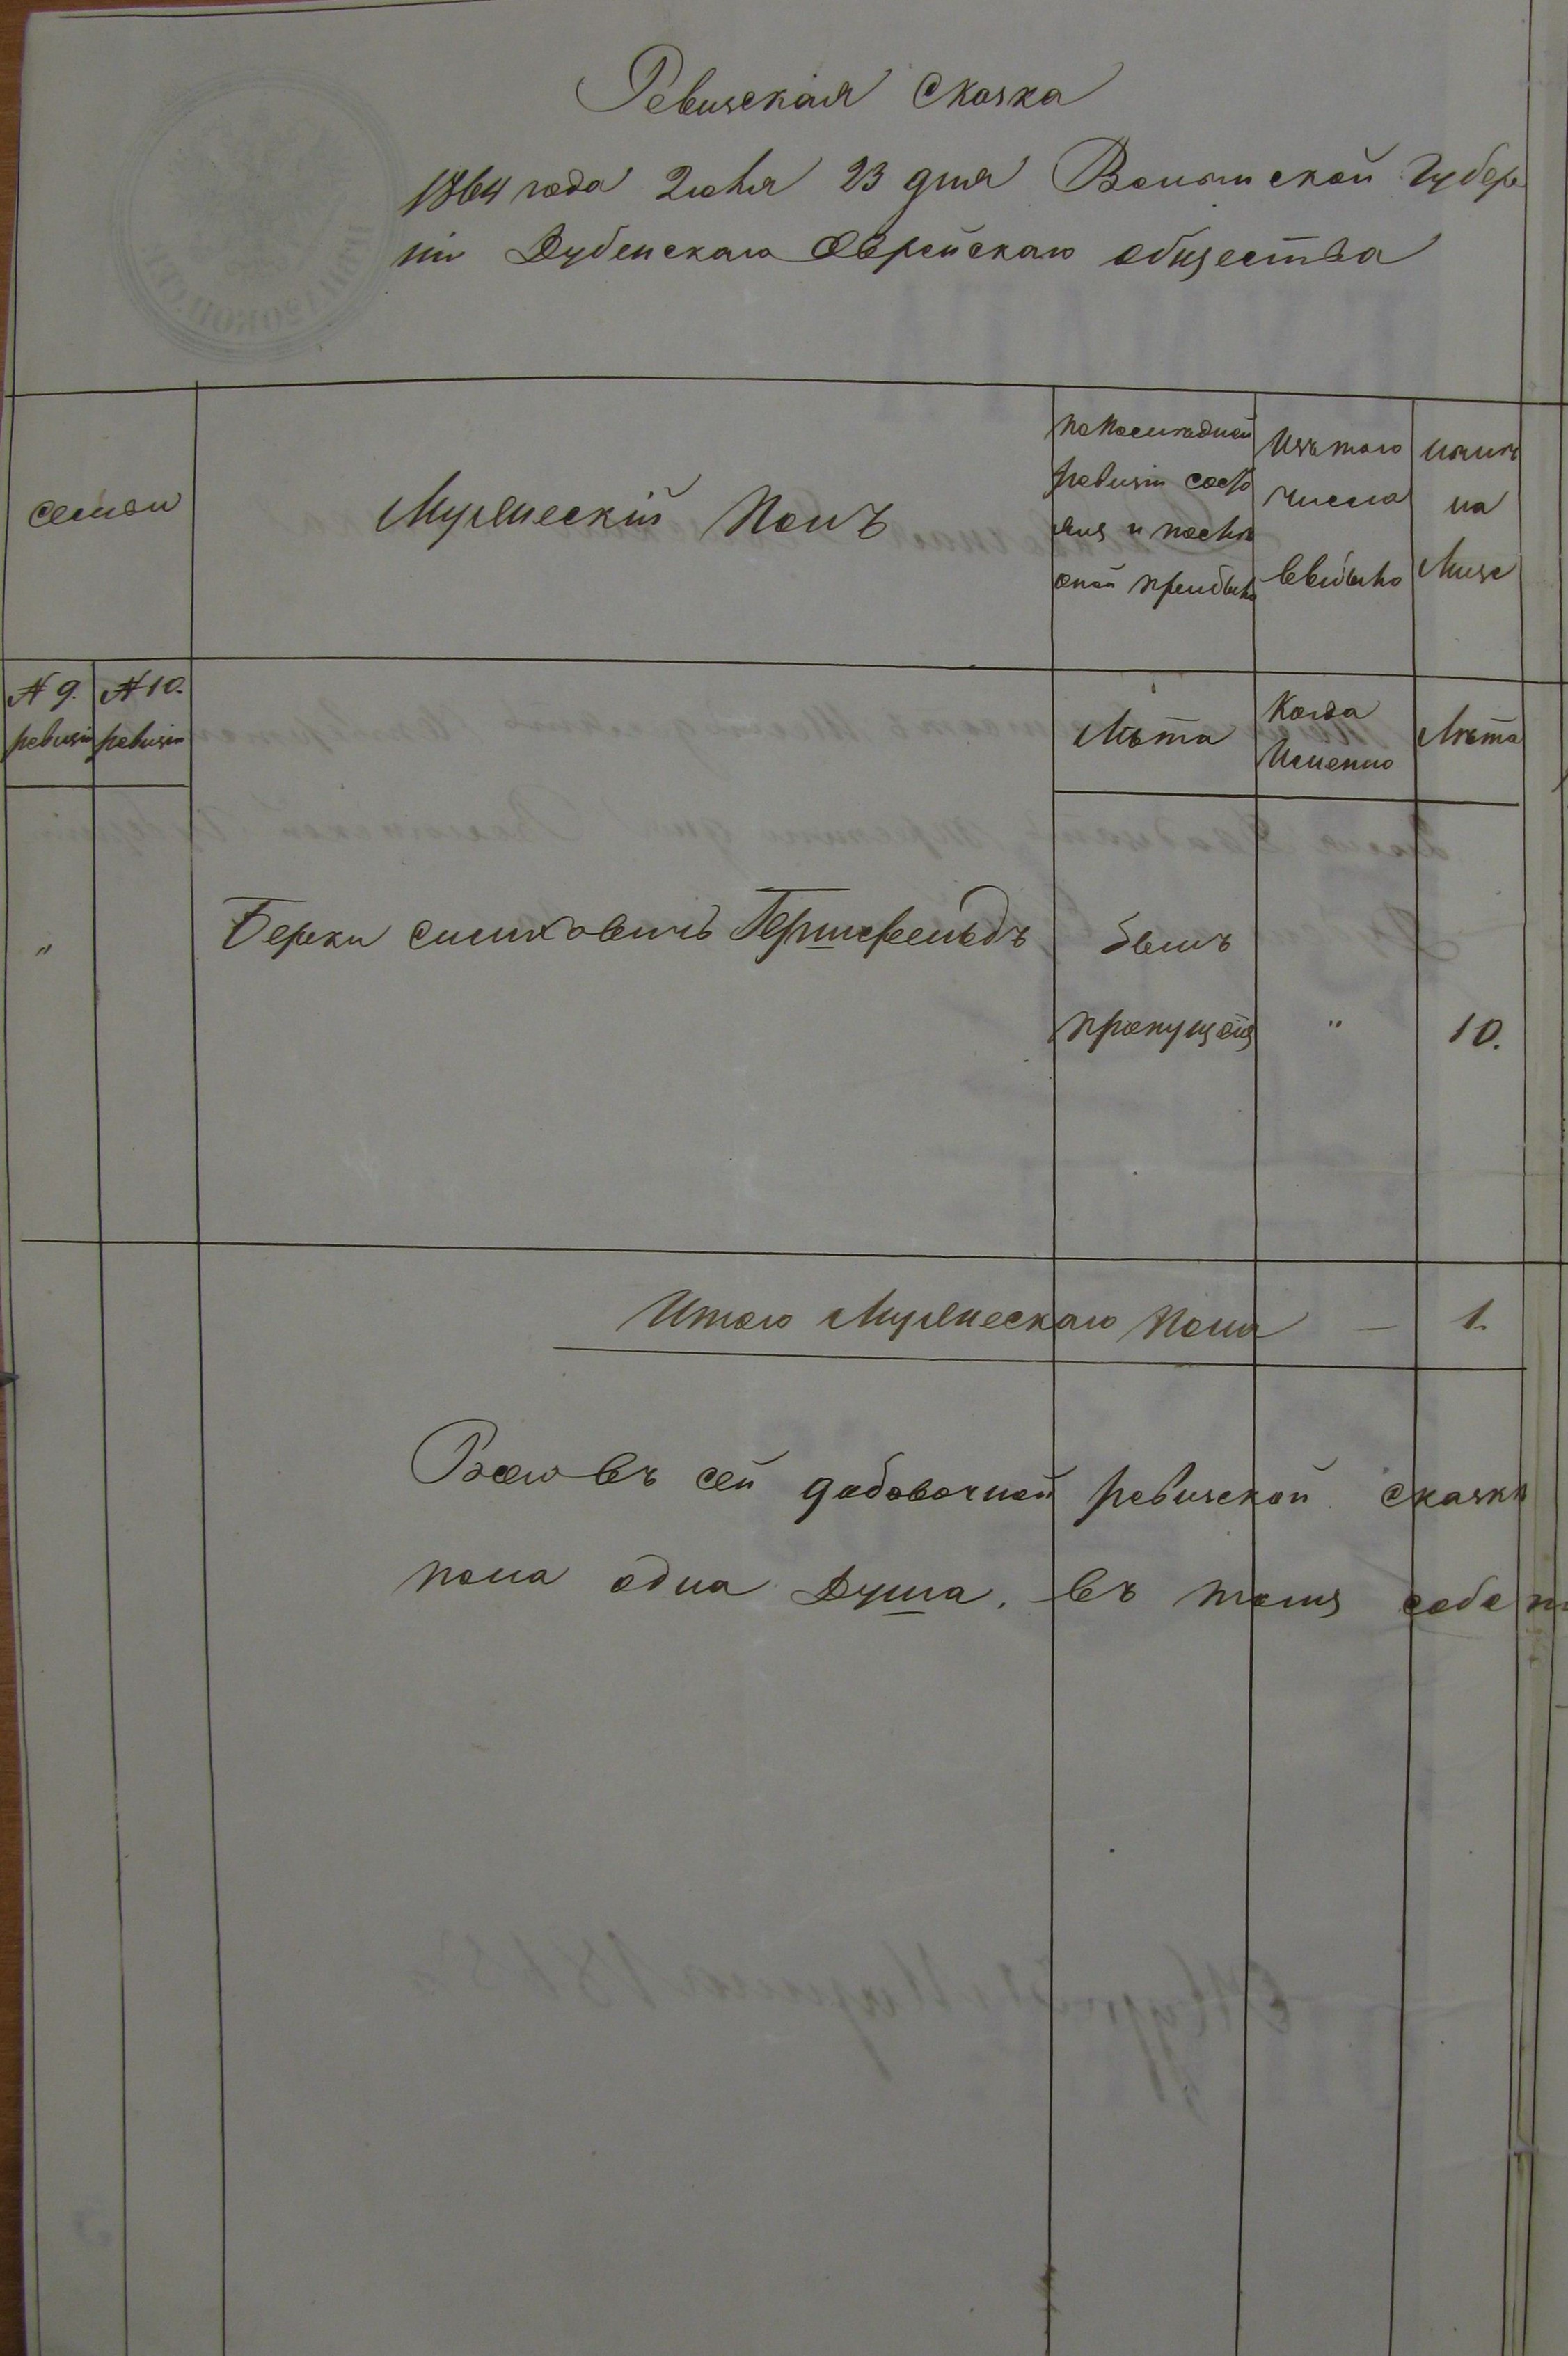 Ревизская Сказка
1864 года Июля 23 дня Волынской Губер
ніи Дубенскаго Еврейскаго общества
семьи
Мужескій Полъ
По последней
ревизіи состо
ялъ и после
оной прибыло
Изъ того
числа
выбыло
ныне
на
лице
№ 9. ревизіи
№ 10. ревизіи
Лѣта
Когда
Именно
Лѣта
"
Берки Сиихович Гершфельдъ
былъ
пропущенъ
"
10.
Итого Мужескаго Пола — 1.
Всего въ сей добавочной ревизской сказкѣ
пола одна Душа. въ томъ